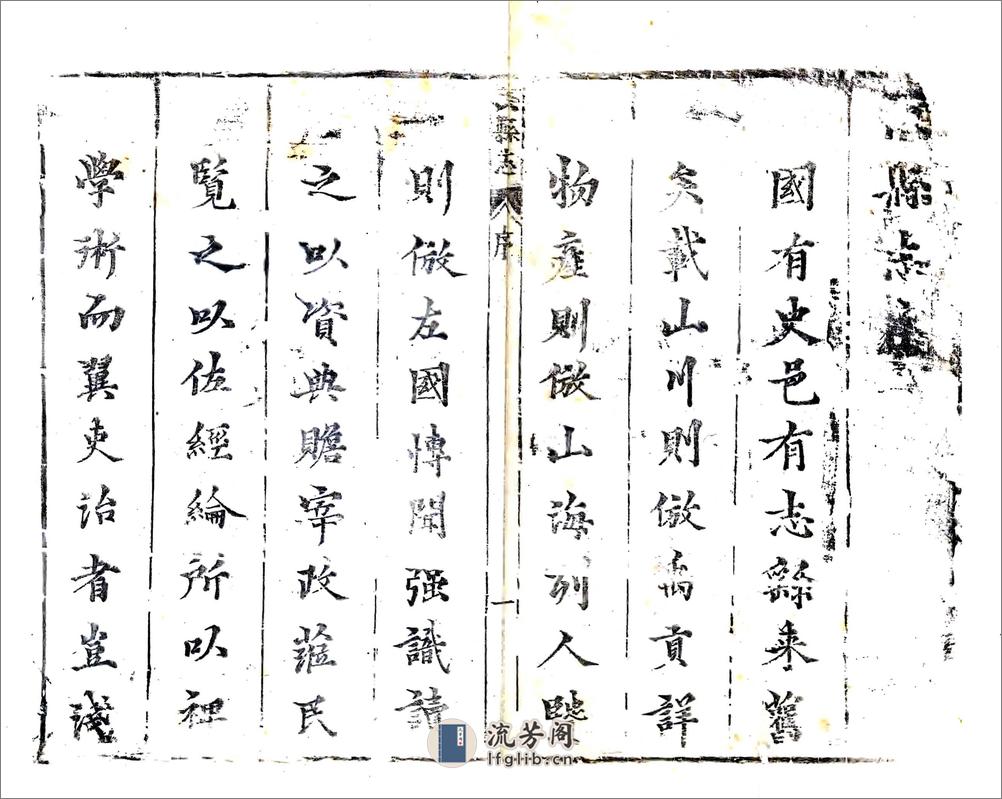 縣志序
國有史邑有志繇来舊
矣載山川則倣禹貢詳
物産則倣山海列人
縣志
序
一
則倣左國博聞强識讀
之以資典贍宰政蒞民
覽之以佐經綸所以裨
學術而翼吏治者豈淺
流芳阁
lfglib.cn